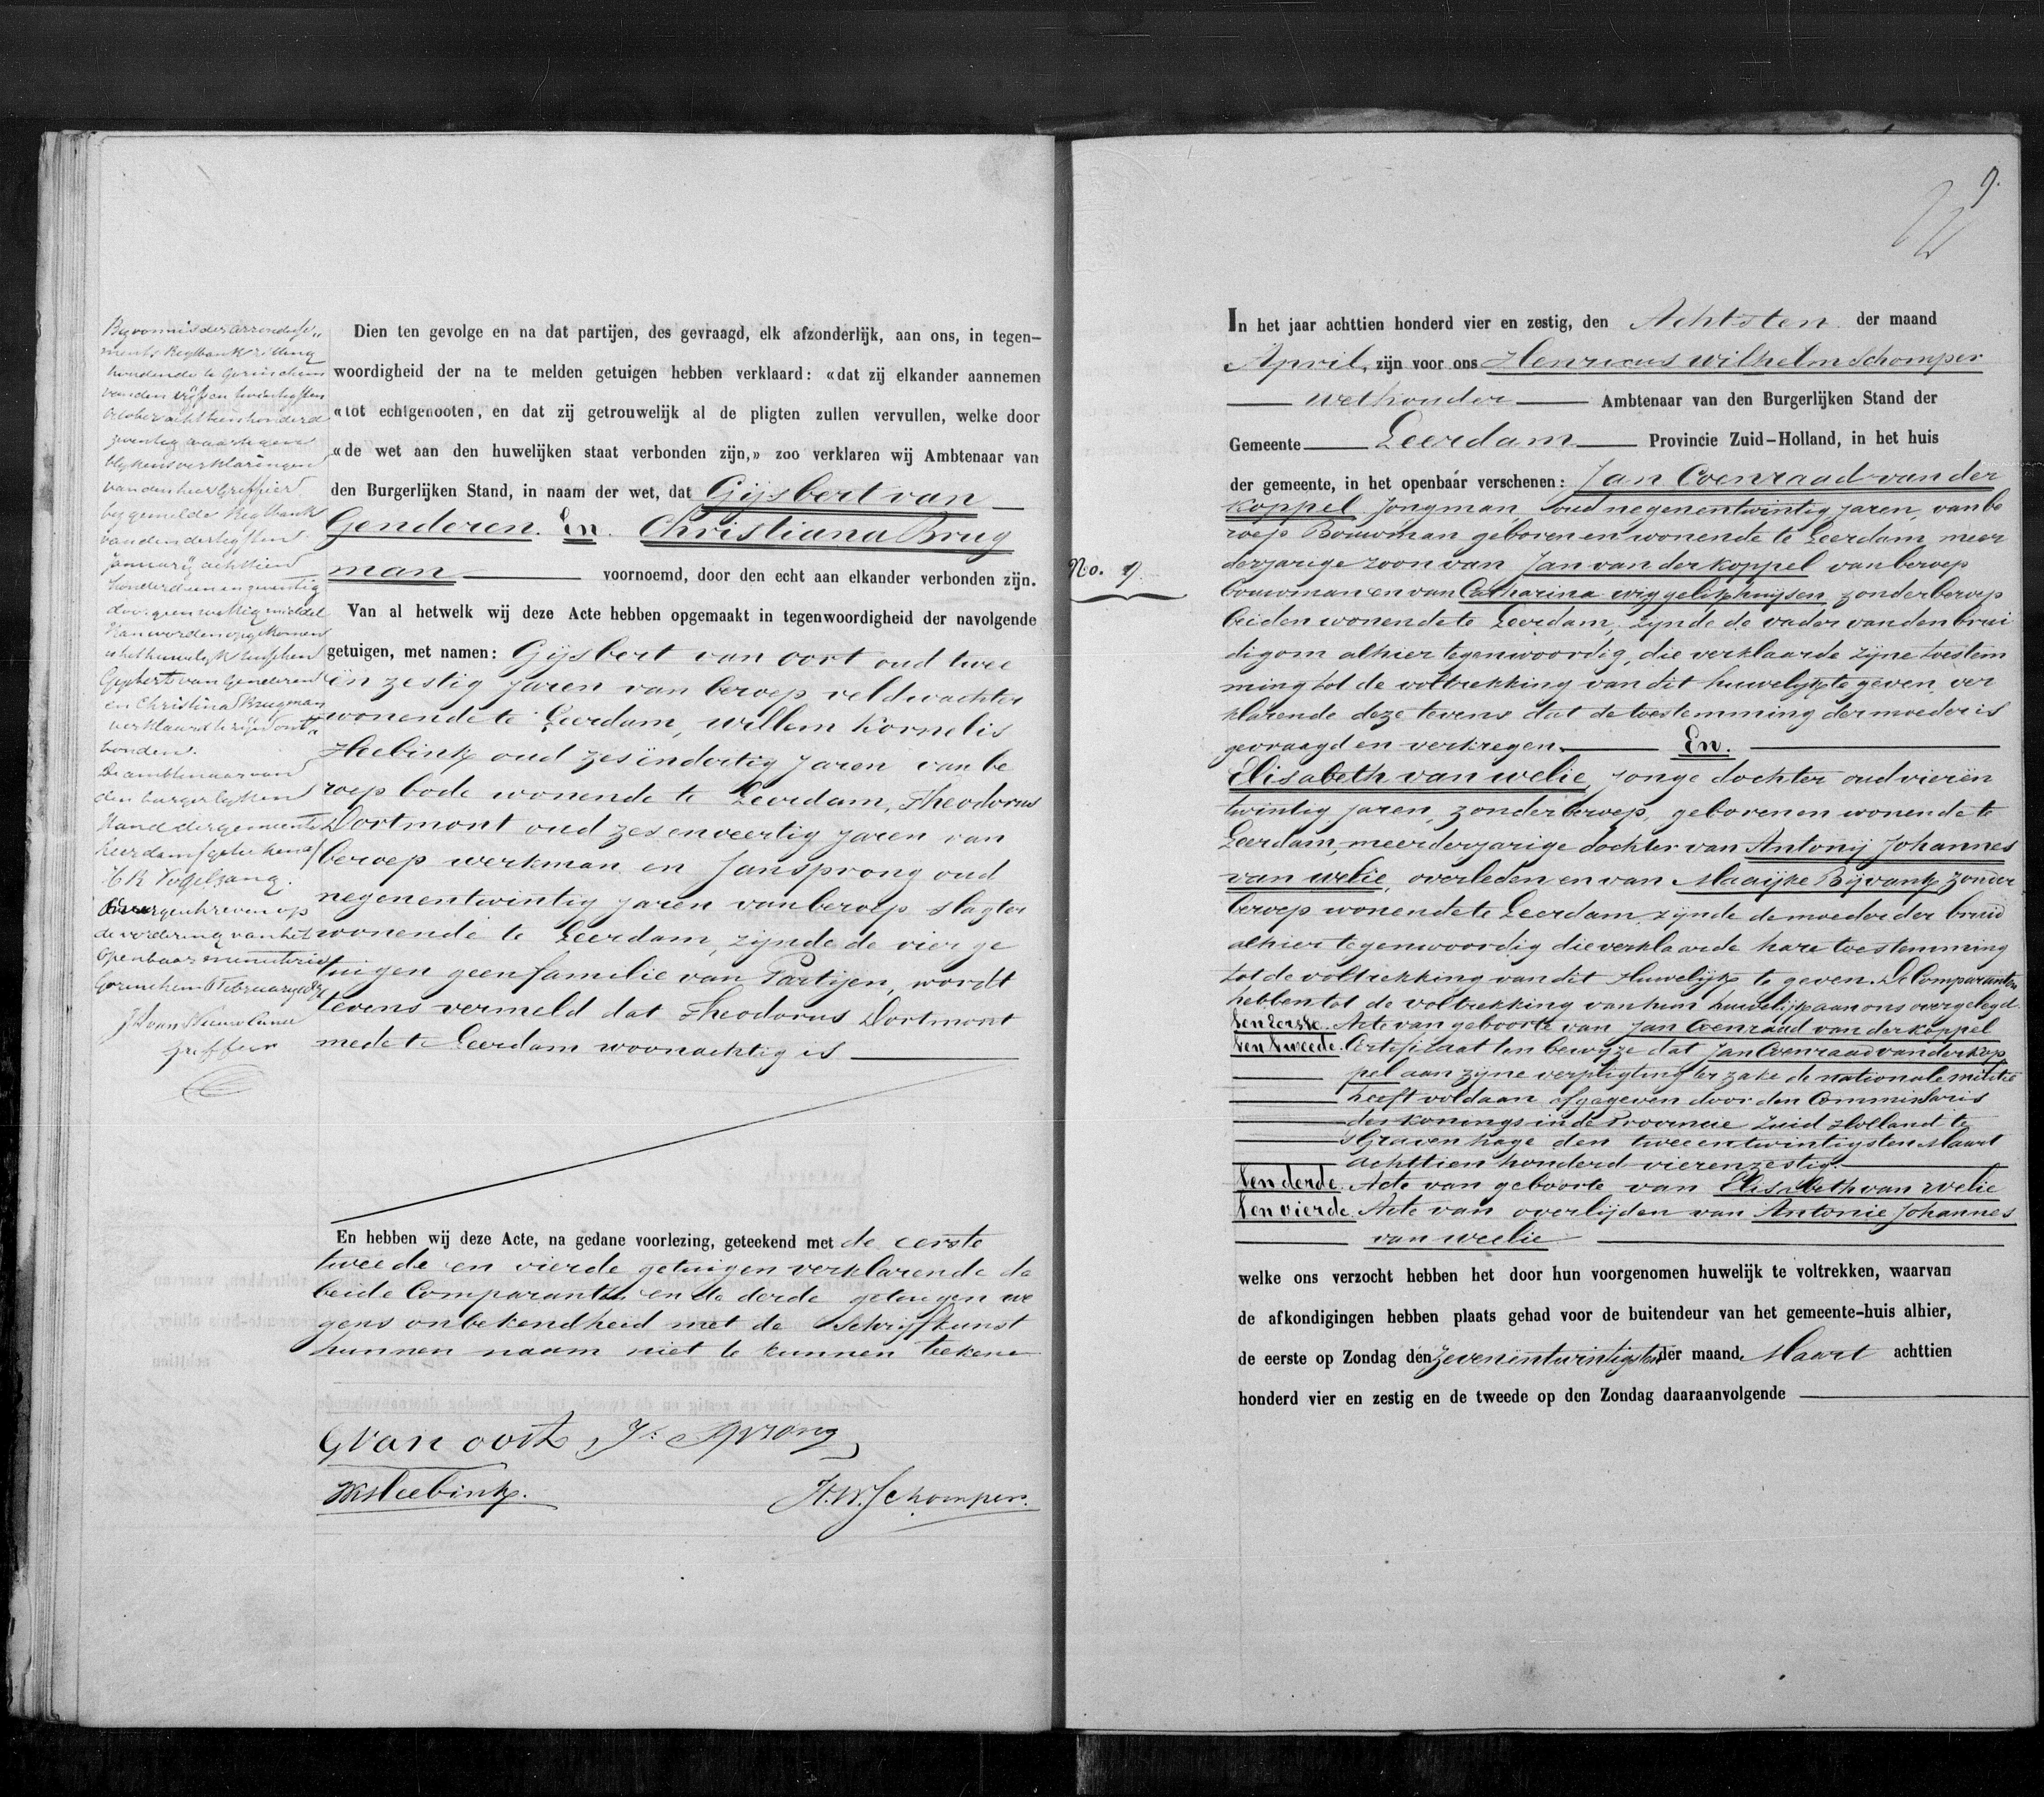 By vonnis der arrondisse„
ments Regtbank zitting
houdende te Gorinchem
van den vijf en twintigsten
October achttien honderd
zeventig waartegen
blykens verklaringen
van den heer Griffier
by gemelde Regtbank
van den dertigsten
January achttien
honderd een en zeventig
door geen wettig middel
kan worden opgekomen
is het huwelyk tusschen
Gysbert van Genderen
en Christina Brugman
verklaard te zyn ont
bonden.
De ambtenaar van
den burgerlyken
stand der gemeente
Leerdam (getekend)
H K Vogelzang.
Overgeschreven op
de vordering van het
Openbaar ministerie
Gorinchem 6 February 1871
griffier
Dien ten gevolge en na dat partijen, des gevraagd, elk afzonderlijk, aan ons, in tegen-
woordigheid der na te melden getuigen hebben verklaard: «dat zij elkander aannemen
«tot echtgenooten, en dat zij getrouwelijk al de pligten zullen vervullen, welke door
«de wet aan den huwelijken staat verbonden zijn,» zoo verklaren wij Ambtenaar van
den Burgerlijken Stand, in naam der wet, dat Gijsbert van
Genderen. En. Christiana Brug
man voornoemd, door den echt aan elkander verbonden zijn.
Van al hetwelk wij deze Acte hebben opgemaakt in tegenwoordigheid der navolgende
getuigen, met namen: Gijsbert van oort oud twee
ën zestig jaren van beroep veldwachter
wonende te Leerdam, willem Kornelis
Heebink oud zesëndertig jaren van be
roep bode wonende te Leerdam, Theodorus
Dortmont oud zesenveertig jaren van
beroep werkman en Jan sprong oud
negenentwintig jaren van beroep slagter
wonende te Leerdam, zijnde de vier ge
tuigen geen familie van Partijen, wordt
tevens vermeld dat Theodorus Dortmont
mede te Leerdam woonachtig is
En hebben wij deze Acte, na gedane voorlezing, geteekend met de eerste
tweede en vierde getuigen verklarende de
beide Comparanten en de derde getuigen we
gens onbekendheid met de Schrijfkunst
hunnen naam niet te kunnen teekene
G van oort, J. Sprong
WK Heebink.
H.W. Schomper.
9.
No. 9.
In het jaar achttien honderd vier en zestig, den Achtsten der maand
April, zijn voor ons Henricus wilhelm Schomper
wethouder Ambtenaar van den Burgerlijken Stand der
Gemeente Leerdam Provincie Zuid-Holland, in het huis
der gemeente, in het openbaar verschenen: Jan Coenraad van der
Koppel Jongman oud negenentwintig jaren, van be
roep Bouwman geboren en wonende te Leerdam, meer
derjarige zoon van Jan van der Koppel van beroep
bouwman en van Catharina wiggelikhuijsen zonder beroep
beiden wonende te Leerdam, zynde de vader van den brui
digom alhier tegenwoordig, die verklaarde zijne toestem
ming tot de voltrekking van dit huwelijk te geven, ver
klarende deze tevens dat de toestemming der moeder is
gevraagd en verkregen. En.
Elisabeth van welie, jonge dochter oud vierën
twintig jaren, zonder beroep, geboren en wonende te
Leerdam, meerderjarige dochter van Antonij Johannes
van welie, overleden en van Maaijke Bijvank zonder
beroep wonende te Leerdam zijnde de moeder der bruid
alhier tegenwoordig die verklaarde hare toestemming
tot de voltrekking van dit Huwelijk te geven. De Comparanten
hebben tot de voltrekking van hun huwelijk aan ons overgelegd
Ten Eerste. Acte van geboorte van Jan Coenraad van der koppel
Ten tweede. Certificaat ten bewijze dat Jan Coenraad van der kop
pel aan zijne verpligting ter zake de nationale militie
heeft voldaan afgegeven door den Commissaris
des konings in de Provincie Zuid Holland te
sGravenhage den tweeentwintigsten Maart
achttien honderd vierenzestig.
Ten derde. Acte van geboorte van Elisabeth van welie
Ten vierde. Acte van overlijden van Antonie Johannes
van welie
welke ons verzocht hebben het door hun voorgenomen huwelijk te voltrekken, waarvan
de afkondigingen hebben plaats gehad voor de buitendeur van het gemeente-huis alhier,
de eerste op Zondag den zevenëntwintigsten der maand Maart achttien
honderd vier en zestig en de tweede op den Zondag daaraanvolgende